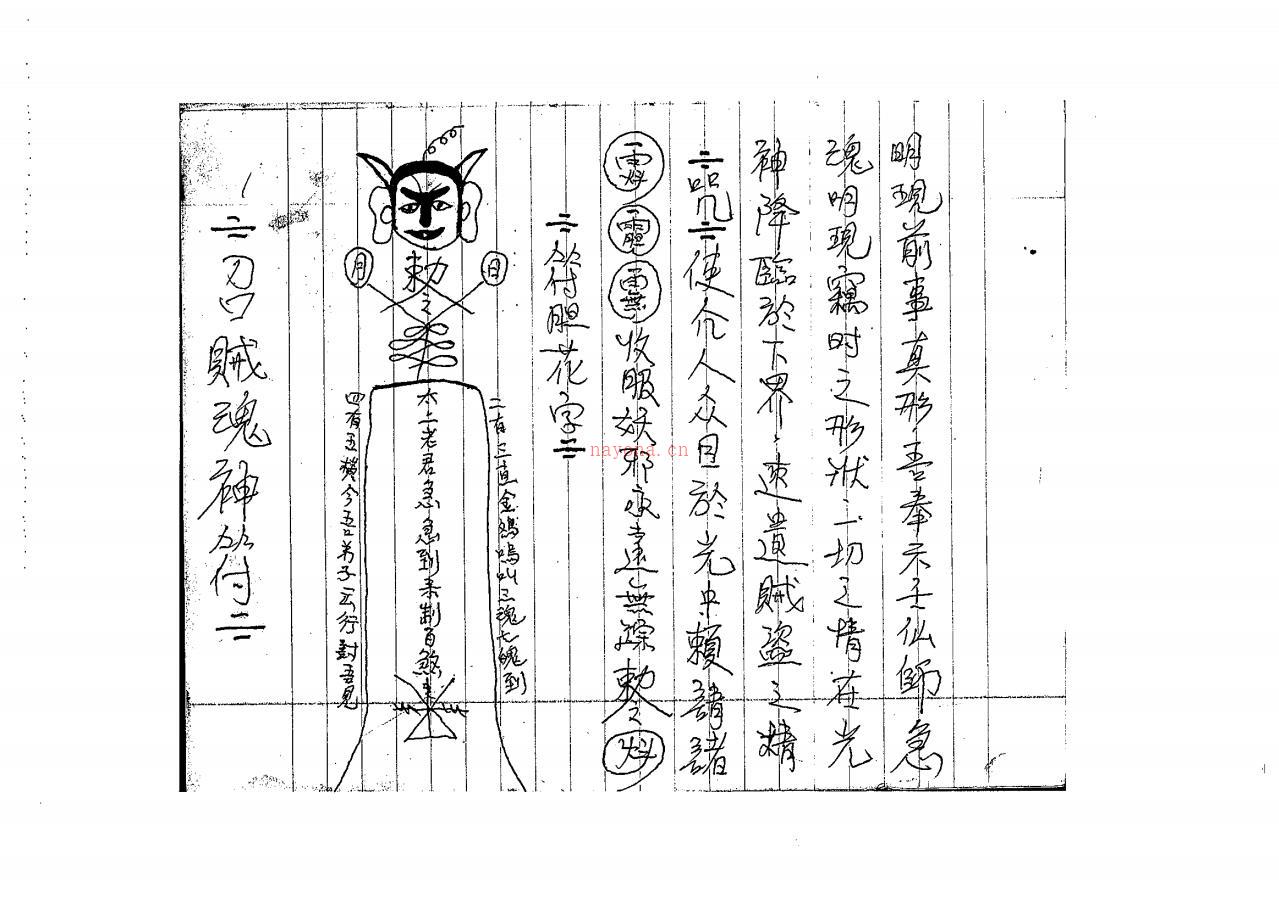 明現前事真形吾奉示子仙師急
魂明現竊时之形狀二切之情在光
神降臨於下界々速遣賊盜之精
二咒二使介人众目於光中賴請諸
收服妖邪永遠無踪敕之
符胆花字
日
月
敕之
二有三直金鷄鳴叫三魂七魄到
六二老君急急到禁制百煞
四有五 今吾弟子云行對吾見
刀口賊魂神符
nayona.cn